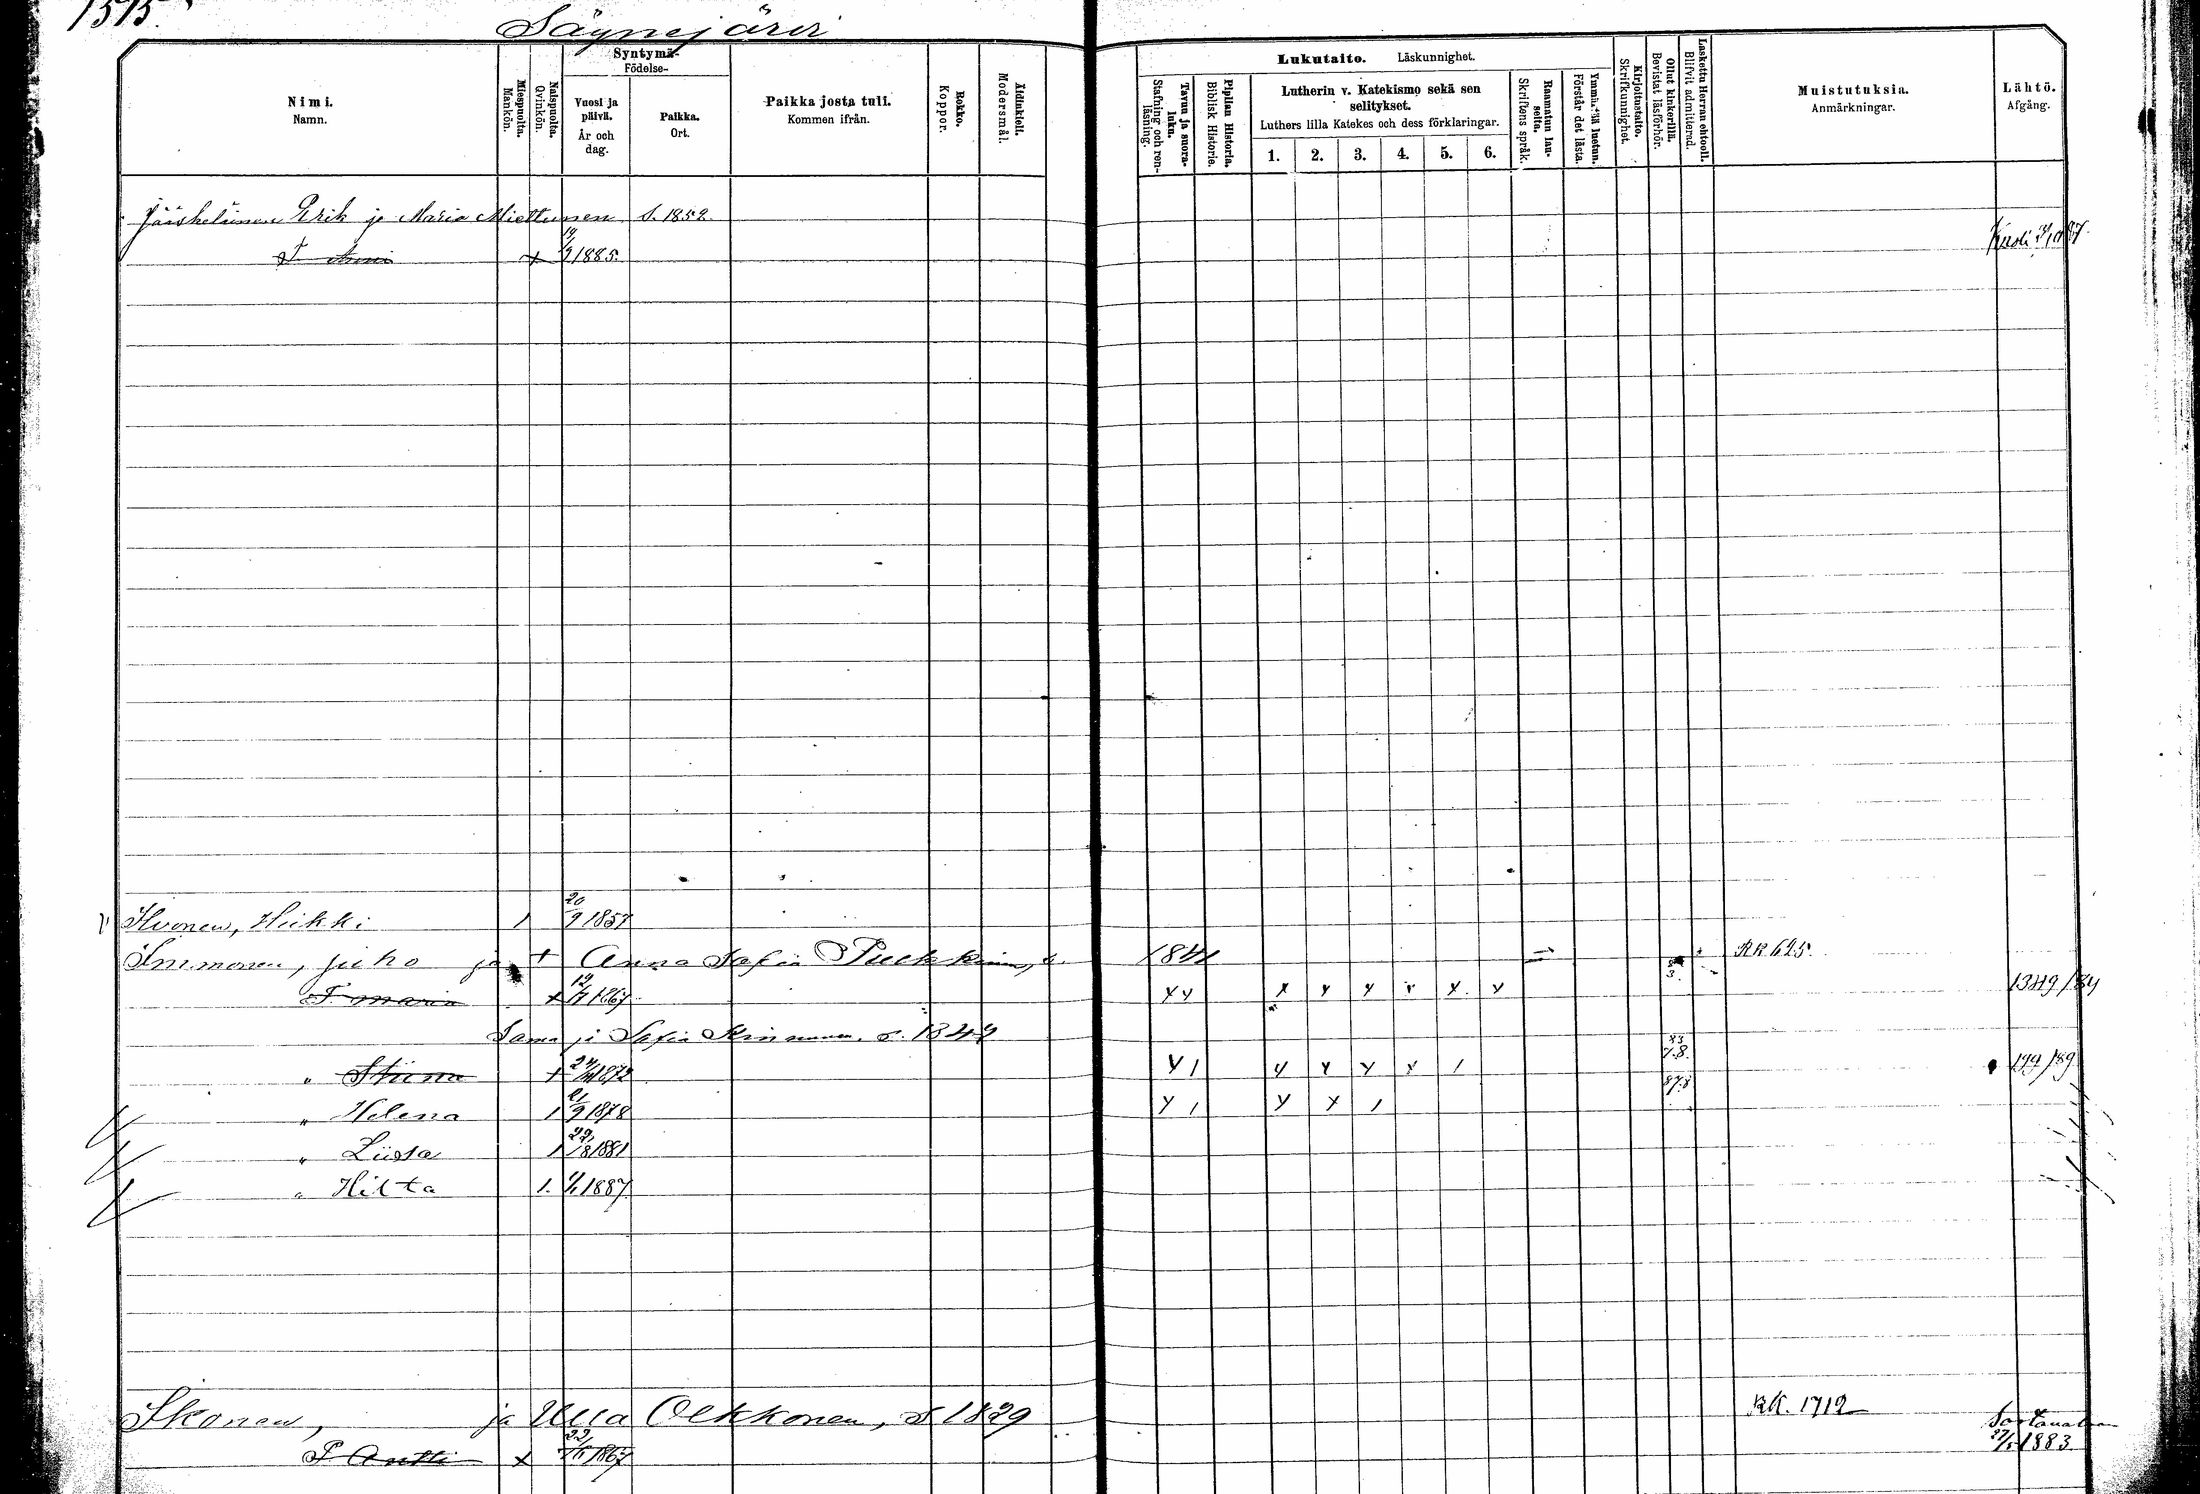 1595.
Säynejärvi
Nimi.
Namn.
Miespuolta.
Mankön.
Naispuolta.
Qvinkön.
Syntymä-
Födelse-
Vuosi ja päivä.
År och dag.
Paikka.
Ort.
Paikka josta tuli.
Kommen ifrån.
Rokko.
Koppor.
Äidinkieli.
Modersmål.
Lukutaito. Läskunnighet.
Tavuu ja suora-luku.
Stafning och ren-läsning.
Piplian Historia.
Biblisk Historie.
Lutherin v. Katekismo sekä sen selitykset.
Luthers lilla Katekes och dess förklaringar.
1. 2. 3. 4. 5. 6.
Raamatun lau-seita.
Skriftens språk.
Ymmärtää luetun.
Förstår det lästa.
Kirjoitustaito.
Skrifkunnighet.
Ollut kinkerillä.
Bevistat läsförhör.
Laskettu Herran ehtooll.
Blifvit admitterad.
Muistutuksia.
Anmärkningar.
Lähtö.
Afgång.
Jääskeläinen Erik ja Maria Miettunen S. 1852.
T. Anni x 19/9 1885. Kuoli
Heikki 1 20/9 1857
Immonen, Juho ja + Anna Sofia s. 1841 RK 625.
T maria x 1867. x x x x x x x x 1349/84
Sama ja Sofia s. 1849
" Stiina + 1872 x 1 x x x x 1 83 7.8. 199/89
" Helena 1 21/9 1878 x 1 x x 1 87.8
" Liisa 1 22/8 1881
" Hilta 1. 1887
Ikonen, ja Ulla Olkkonen, S 1829 RK. 1712
P Antti x 22/ 1867 Sortavalaan 1883